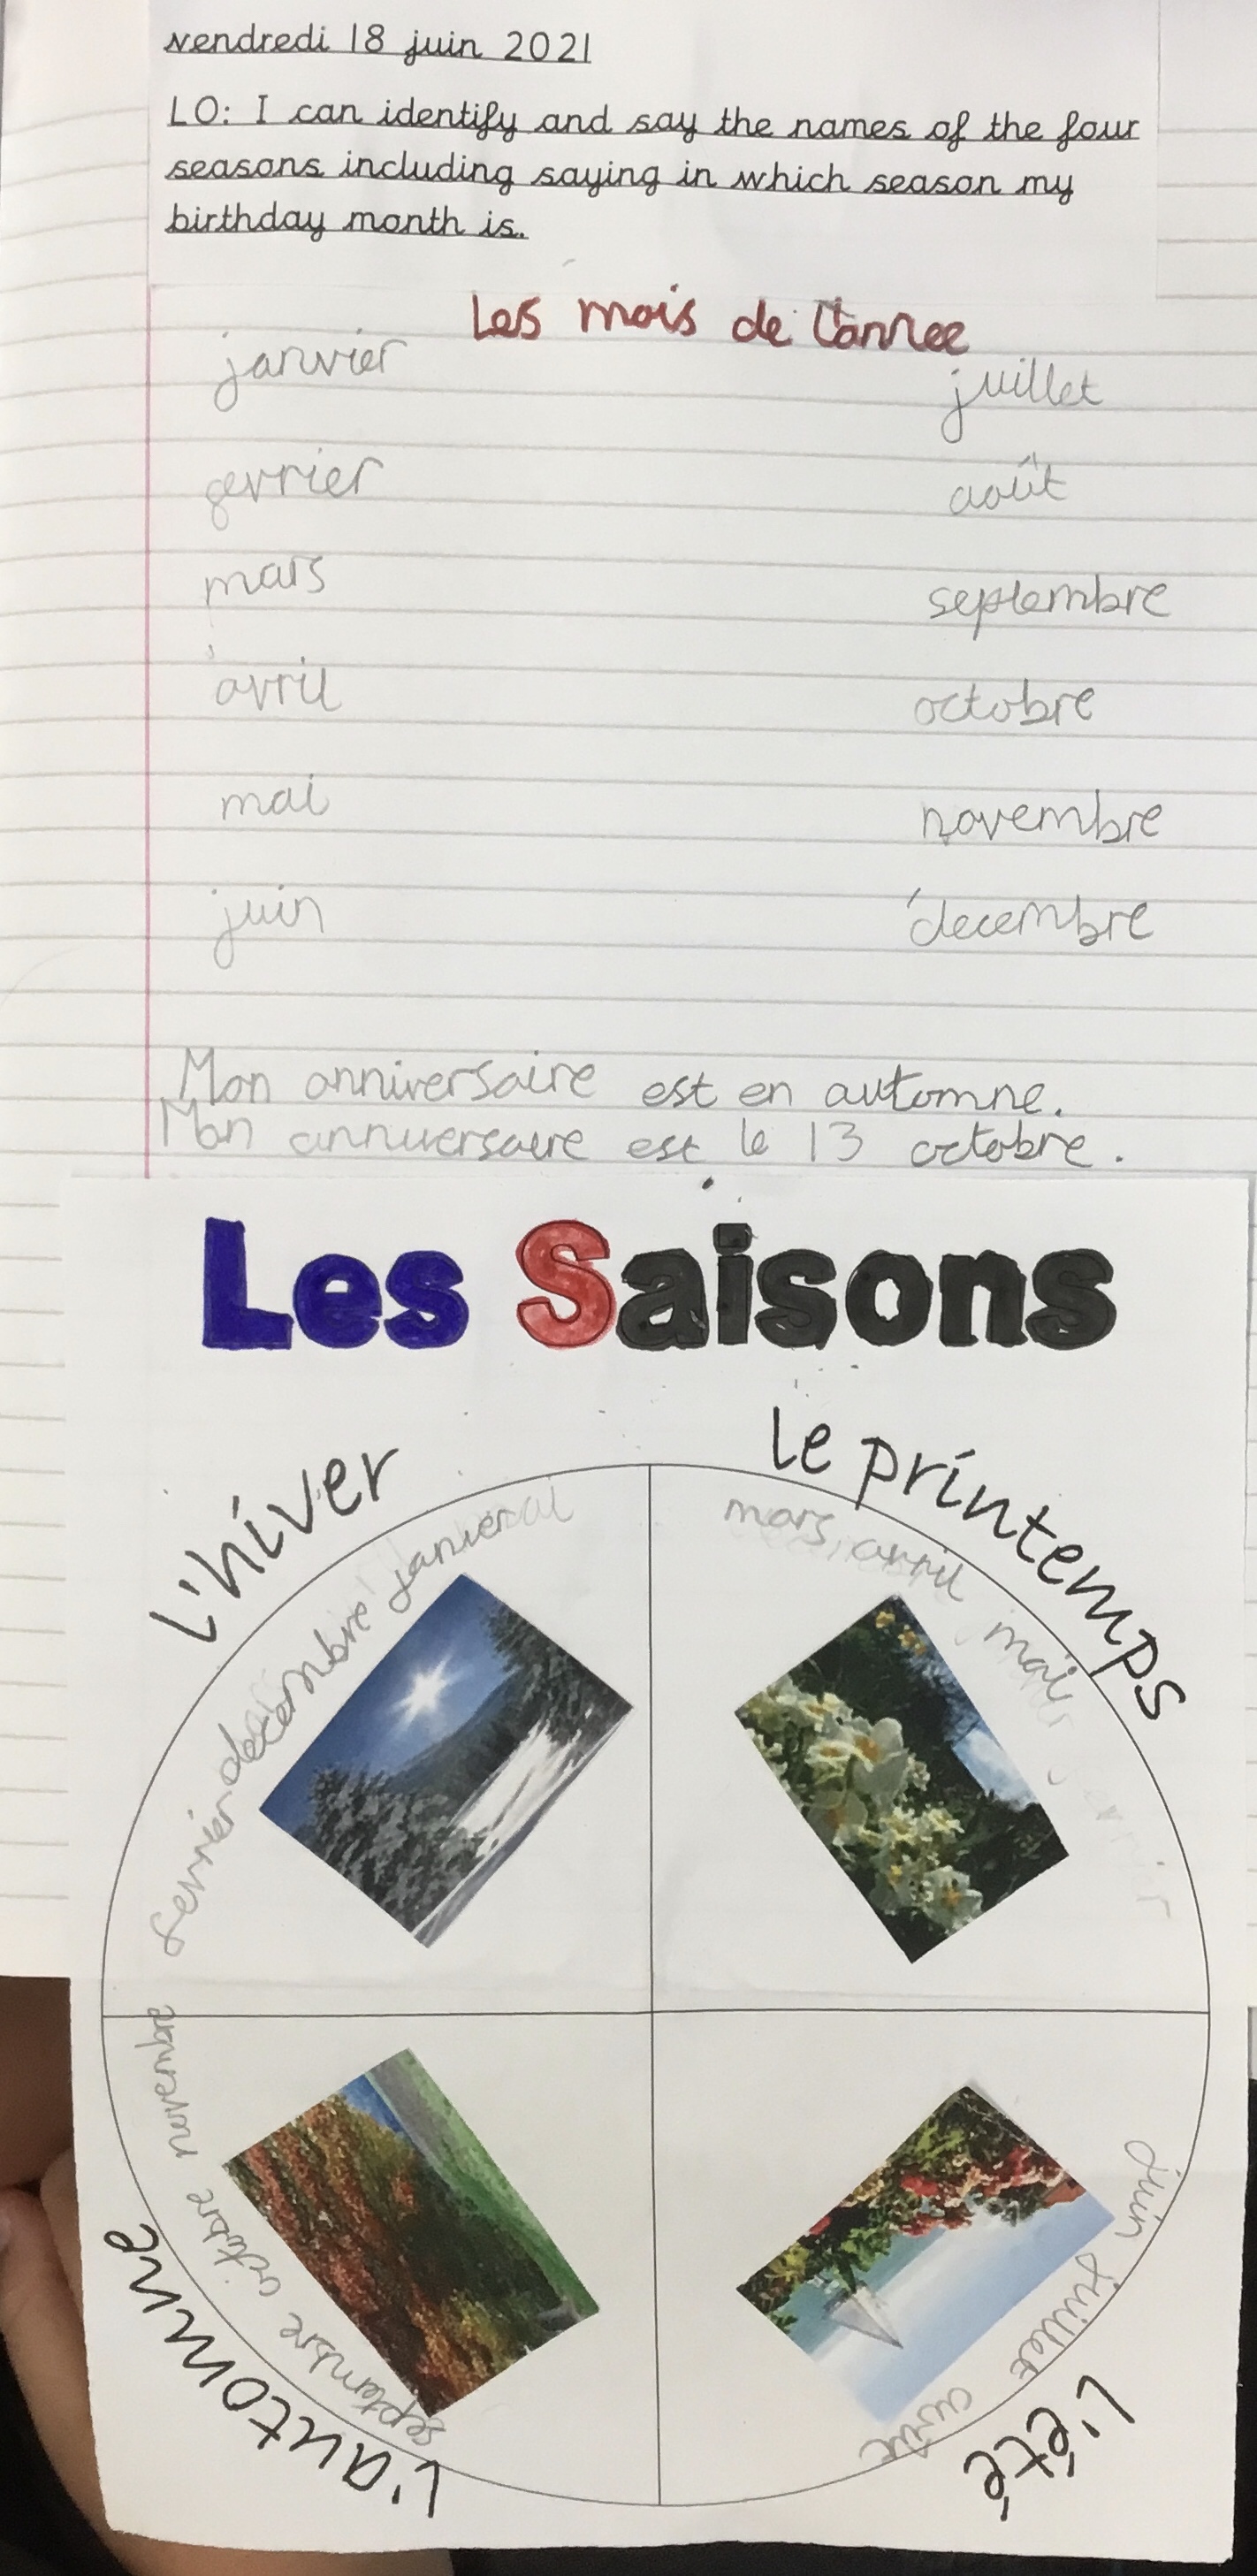 vendredi 18 juin 2021
LO: I can identify and say the names of the four
seasons including saying in which season my
birthday month is.
Les mois de l'annee
janvier
juillet
fevrier
août
mars
septembre
avril
octobre
mai
novembre
juin
decembre
Mon anniversaire est en automne.
Mon anniversaire est le 13 octobre.
Les Saisons
L'hiver
fevrier decembre janvier
le printemps
mars, avril mai
L'automne
septembre octobre novembre
L'été
juin juillet